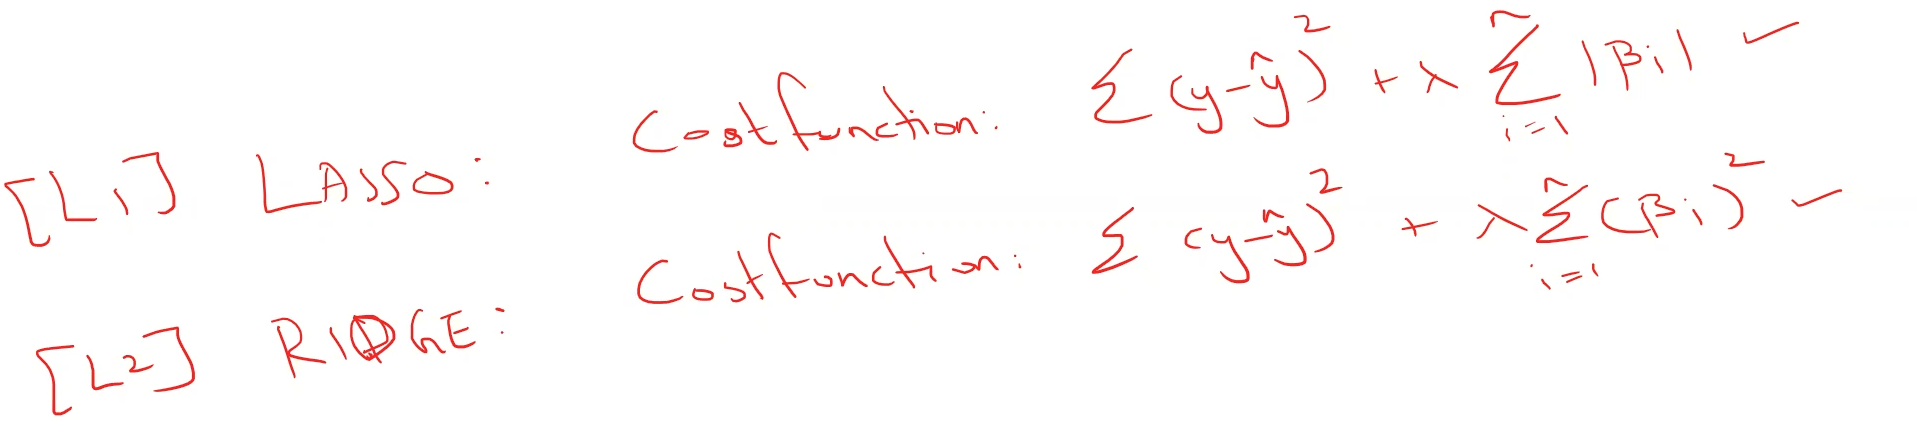 [L1] LASSO: Cost function: Σ (y-ŷ)² + λ Σ_{i=1}^{n} |βi| ✓
[L2] RIDGE: Cost function: Σ (y-ŷ)² + λ Σ_{i=1}^{n} (βi)² ✓